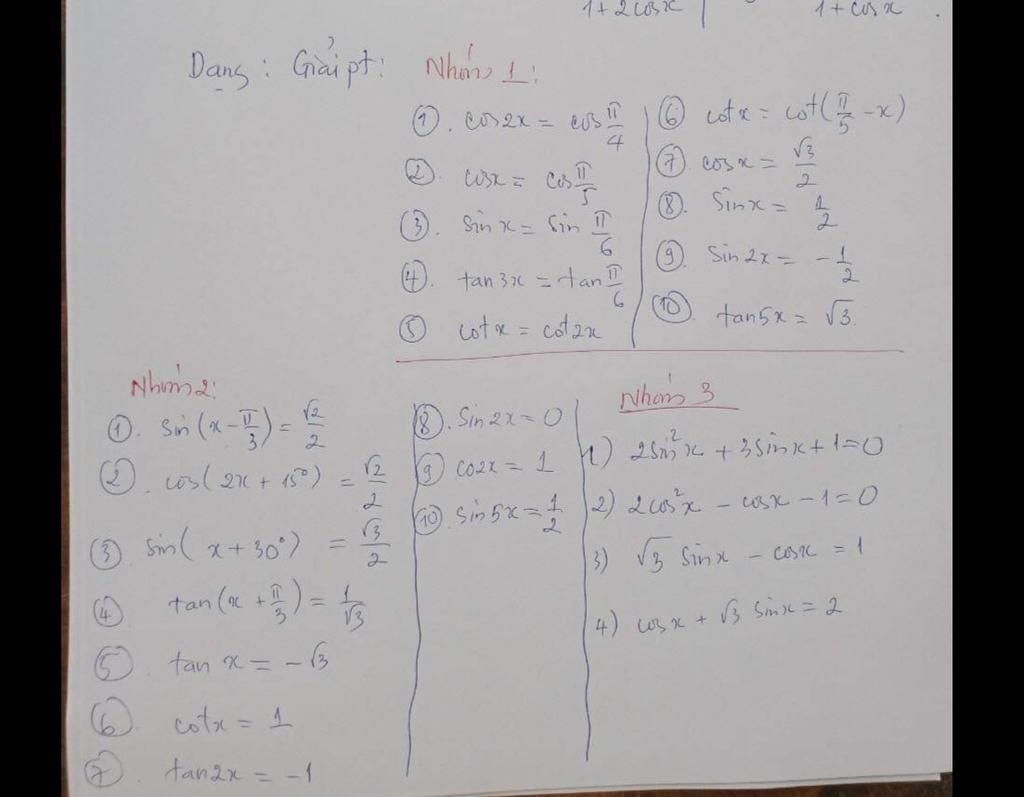 1+2cosx 1+cosx.
Dạng: Giải pt: Nhóm 1:
①. cos2x = cos π/4
②. cosx = cos π/5
③. sinx = sin π/6
④. tan3x = tan π/6
⑤ cotx = cot2x
⑥ cotx = cot(π/5 - x)
⑦. cosx = √3/2
⑧. sinx = 1/2
⑨. sin2x = -1/2
⑩. tan5x = √3.
Nhóm 2:
①. sin(x - π/3) = √2/2
②. cos(2x + 15°) = √2/2
③ sin(x + 30°) = √3/2
④ tan(x + π/3) = 1/√3
⑤. tan x = -√3
⑥. cotx = 1
⑦. tan2x = -1
⑧. sin2x = 0
⑨ co2x = 1
⑩. sin5x = 1/2
Nhóm 3
1) 2sin²x + 3sinx + 1 = 0
2) 2cos²x - cosx - 1 = 0
3) √3 sinx - cosx = 1
4) cosx + √3 sinx = 2